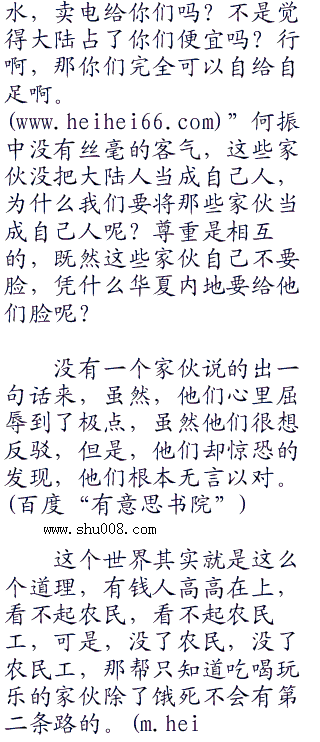 水，卖电给你们吗？不是觉
得大陆占了你们便宜吗？行
啊，那你们完全可以自给自
足啊。
(www.heihei66.com)”何振
中没有丝毫的客气，这些家
伙没把大陆人当成自己人，
为什么我们要将那些家伙当
成自己人呢？尊重是相互
的，既然这些家伙自己不要
脸，凭什么华夏内地要给他
们脸呢？
没有一个家伙说的出一
句话来，虽然，他们心里屈
辱到了极点，虽然他们很想
反驳，但是，他们却惊恐的
发现，他们根本无言以对。
(百度“有意思书院”)
www.shu008.com
这个世界其实就是这么
个道理，有钱人高高在上，
看不起农民，看不起农民
工，可是，没了农民，没了
农民工，那帮只知道吃喝玩
乐的家伙除了饿死不会有第
二条路的。(m.hei